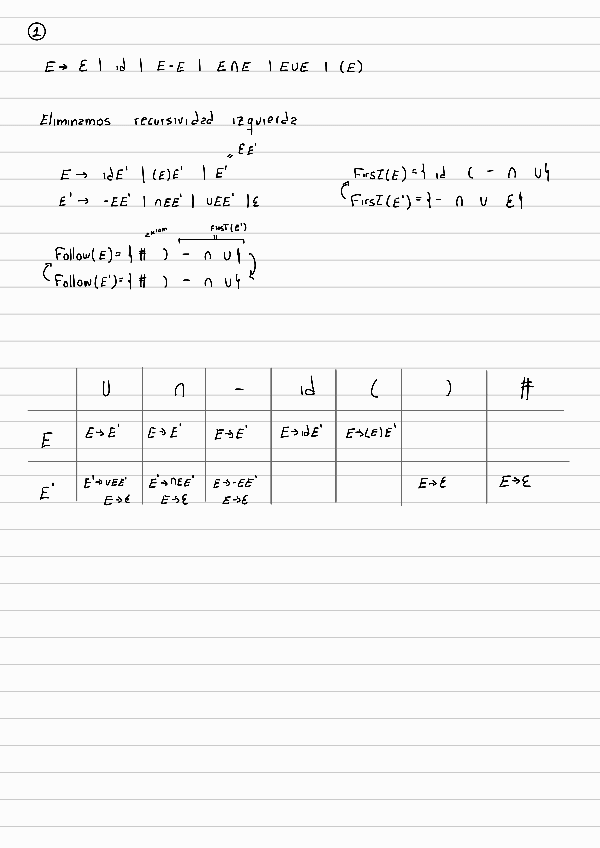 1
E → ε | id | E-E | E∩E | E∪E | (E)
Eliminamos recursividad izquierda
" εE'
E → idE' | (E)E' | E'
E' → -EE' | ∩EE' | ∪EE' | ε
First(E) = { id ( - ∩ ∪}
First(E') = {- ∩ ∪ ε}
First(E')
Follow(E) = { # ) - ∩ ∪}
Follow(E') = { # ) - ∩ ∪}
∪ ∩ - id ( ) #
E E→E' E→E' E→E' E→idE' E→(E)E'
E' E'→∪EE' E'→∩EE' E→-EE' E→ε E→ε
E→ε E→ε E→ε